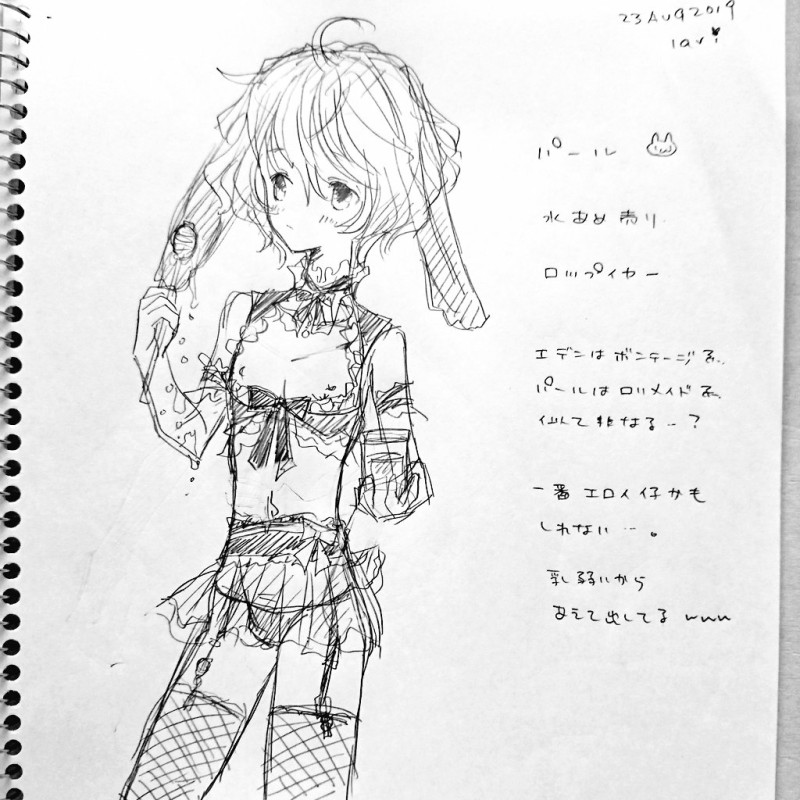 23 Aug 2019
lavi
パール
水あめ売り
ロップイヤー
エデンはボンテージ系。
パールはロリメイド系。
似て非なる…?
一番エロイ仔かも
しれない…。
乳弱いから
あえて出してる www